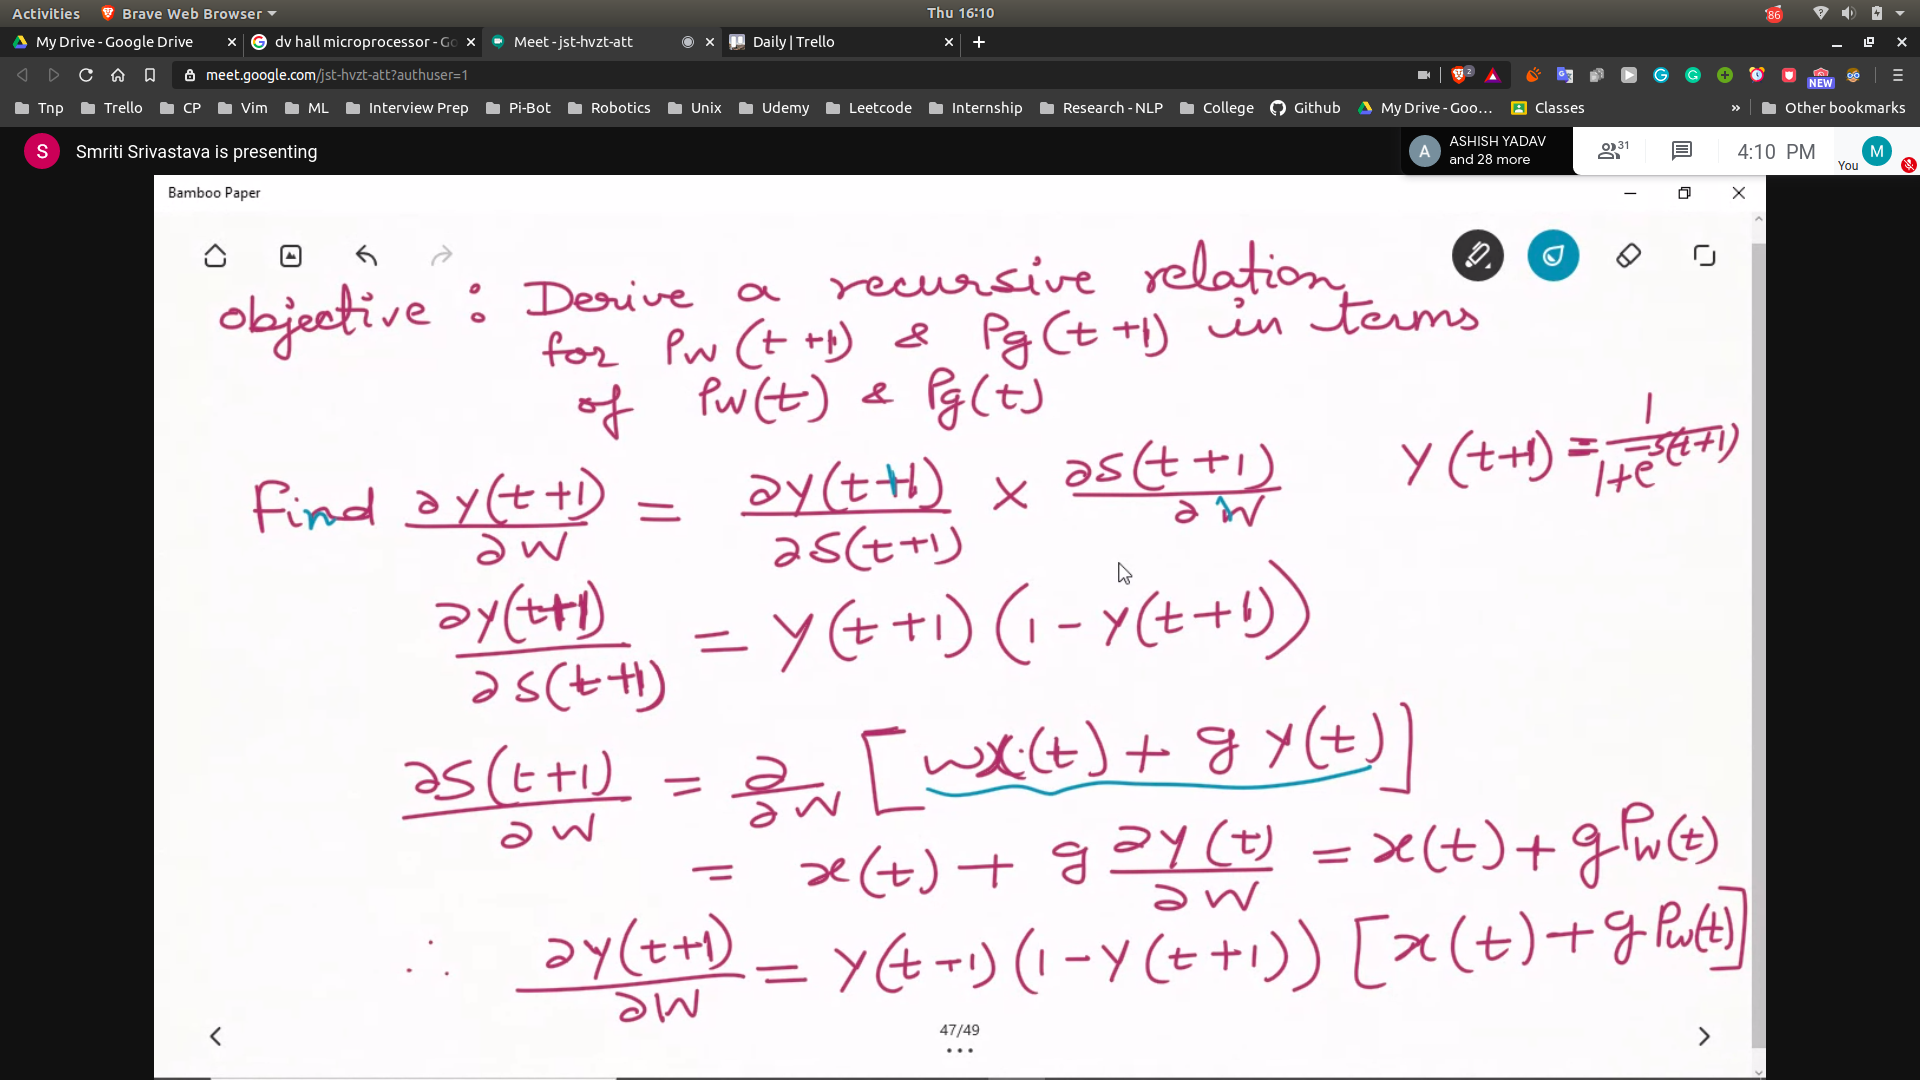 Activities Brave Web Browser Thu 16:10 86
My Drive - Google Drive dv hall microprocessor - Go Meet - jst-hvzt-att Daily | Trello
meet.google.com/jst-hvzt-att?authuser=1 2 NEW
Tnp Trello CP Vim ML Interview Prep Pi-Bot Robotics Unix Udemy Leetcode Internship Research - NLP College Github My Drive - Goo... Classes » Other bookmarks
S Smriti Srivastava is presenting
A ASHISH YADAV
and 28 more
31 4:10 PM You M
Bamboo Paper
objective : Derive a recursive relation
for Pw(t+1) & Pg(t+1) in terms
of Pw(t) & Pg(t)
Find ∂y(t+1)/∂w = ∂y(t+1)/∂s(t+1) × ∂s(t+1)/∂w
y(t+1) = 1/(1+e^-s(t+1))
∂y(t+1)/∂s(t+1) = y(t+1)(1-y(t+1))
∂s(t+1)/∂w = ∂/∂w [wx(t) + g y(t)]
= x(t) + g ∂y(t)/∂w = x(t) + gPw(t)
∴ ∂y(t+1)/∂w = y(t+1)(1-y(t+1)) [x(t) + gPw(t)]
47/49